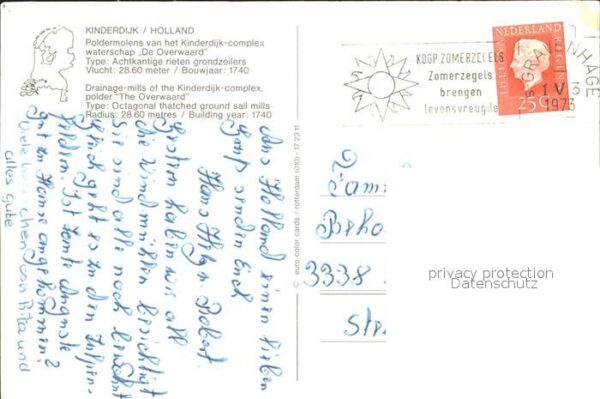 KINDERDIJK / HOLLAND
Poldermolens van het Kinderdijk-complex
waterschap „De Overwaard”
Type: Achtkantige rieten grondzeilers
Vlucht: 28.60 meter / Bouwjaar: 1740
Drainage-mills of the Kinderdijk-complex,
polder "The Overwaard"
Type: Octagonal thatched ground sail mills
Radius: 28.60 metres / Building year: 1740
KOOP ZOMERZEGELS
Zomerzegels
brengen
levensvreugde
'S GRAVENHAGE
IV
1973
NEDERLAND
25c
© euro color cards / rotterdam (010) - 17 23 11
Aus Holland einen lieben
Gruß senden Euch
Hans Robert.
Gestern haben wir all
die Windmühlen besichtigt
Sie sind alle noch bewohnt
Gleich geht es in den Tulpen-
felder. Ist Tante Auguste
gut zu Hause angekommen?
von Rita und
alles gute
Fam
3338
privacy protection
Datenschutz